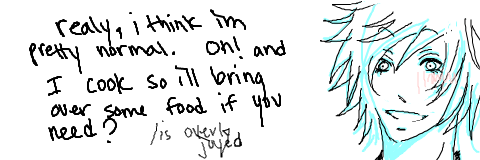 realy, i think i'm
pretty normal. Oh! and
I cook so i'll bring
over some food if you
need?
/is overly
joyed